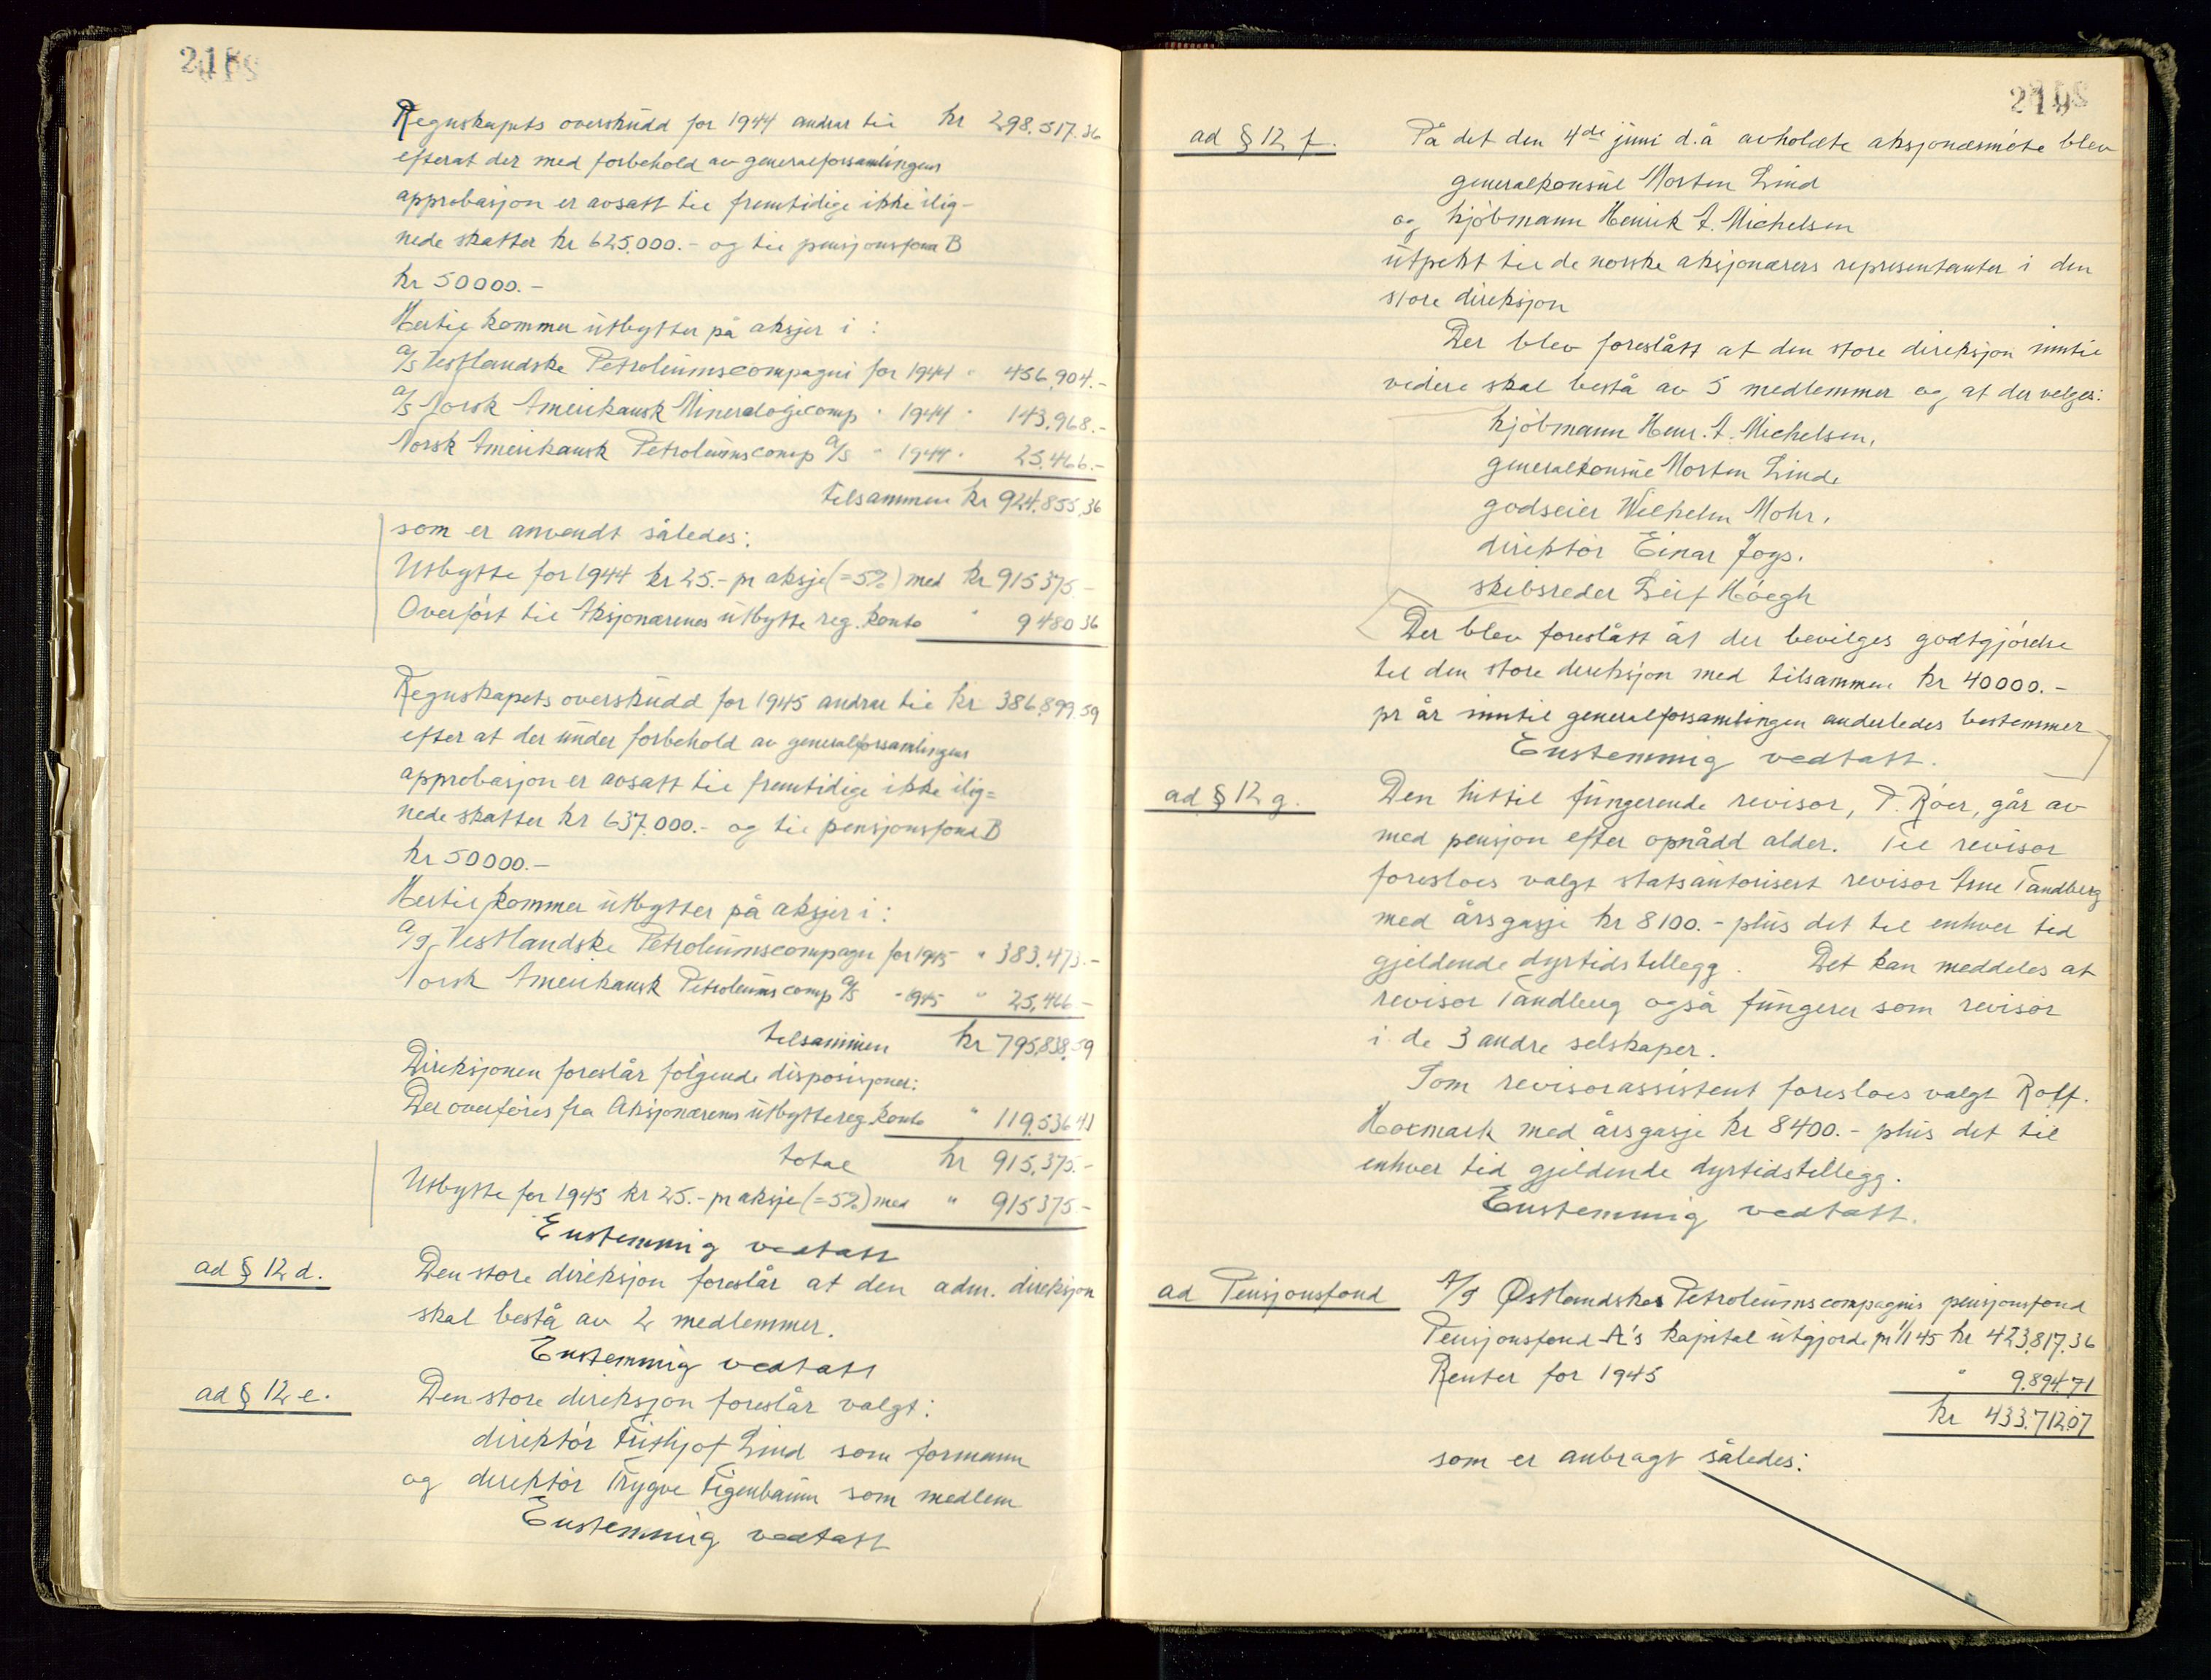 218
Regnskapets overskudd for 1944 andrar til kr 298.517.36
efterat der med forbehold av generalforsamlingens
approbasjon er avsatt til fremtidige ikke ilig-
nede skatter kr 625.000.- og til pensjonsfond B
kr 50000.-
Hertil kommer utbytter på aksjer i :
A/S Vestlandske Petroleumscompagni for 1944 " 456,904.-
A/S Norsk Amerikansk Mineraloljecomp " 1944 " 143.968.-
Norsk Amerikansk Petroleumscomp A/S " 1944 " 25.466.-
tilsammen kr 924.855,36
som er anvendt således:
Utbytte for 1944 kr 25.- pr aksje (=5%) med kr 915375.-
Overført til Aksjonærenes utbytte reg. konto " 9480 36
Regnskapets overskudd for 1945 andrar til kr 386,899.59
efter at der under forbehold av generalforsamlingens
approbasjon er avsatt til fremtidige ikke ilig=
nede skatter kr 637.000.- og til pensjonsfond B
kr 50000.-
Hertil kommer utbytter på aksjer i :
A/S Vestlandske Petroleumscompagni for 1945 " 383.473.-
Norsk Amerikansk Petroleumscomp A/S " 1945 " 25,466-
tilsammen kr 795,838,59
Direksjonen foreslår følgende disposisjoner:
Der overføres fra Aksjonærenes utbyttereg. konto " 119.536 41
total kr 915,375.-
Utbytte for 1945 kr 25.- pr aksje (=5%) med " 915375-
Enstemmig vedtatt
ad § 12 d. Den store direksjon foreslår at den adm. direksjon
skal bestå av 2 medlemmer.
Enstemmig vedtatt
ad § 12 e. Den store direksjon foreslår valgt:
direktör Frithjof Lind som formann
og direktör Trygve Figenbaum som medlem
Enstemmig vedtatt
219
ad § 12 f. På det den 4de juni d.å avholdte aksjonærmöte blev
generalkonsul Morten Lind
og kjöbmann Henrik A. Michelsen
utpekt til de norske aksjonærers representanter i den
store direksjon
Der blev foreslått at den store direksjon inntil
videre skal bestå av 5 medlemmer og at der velges:
kjöbmann Henr. A. Michelsen,
generalkonsul Morten Linde
godseier Wilhelm Mohr,
direktör Einar Joys.
skibsreder Leif Höegh
Der blev foreslått at der bevilges godtgjörelse
til den store direksjon med tilsammen kr 40000.-
pr år inntil generalforsamlingen anderledes bestemmer
Enstemmig vedtatt.
ad § 12 g. Den hittil fungerende revisor, P. Röer, går av
med pensjon efter opnådd alder. Til revisor
foresloes valgt statsautorisert revisor Arne Tandberg
med årsgasje kr 8100.- plus det til enhver tid
gjeldende dyrtidstillegg. Det kan meddeles at
revisor Tandberg også fungerer som revisor
i de 3 andre selskaper.
Som revisorassistent foresloes valgt Rolf.
Hoxmark med årsgasje kr 8400.- plus det til
enhver tid gjeldende dyrtidstillegg.
Enstemmig vedtatt.
ad Pensjonsfond A/S Østlandske Petroleumscompagnis pensjonsfond
Pensjonsfond A's kapital utgjorde pr 1/1 45 kr 423.817.36
Renter for 1945 " 9.894.71
kr 433.712.07
som er anbragt således: